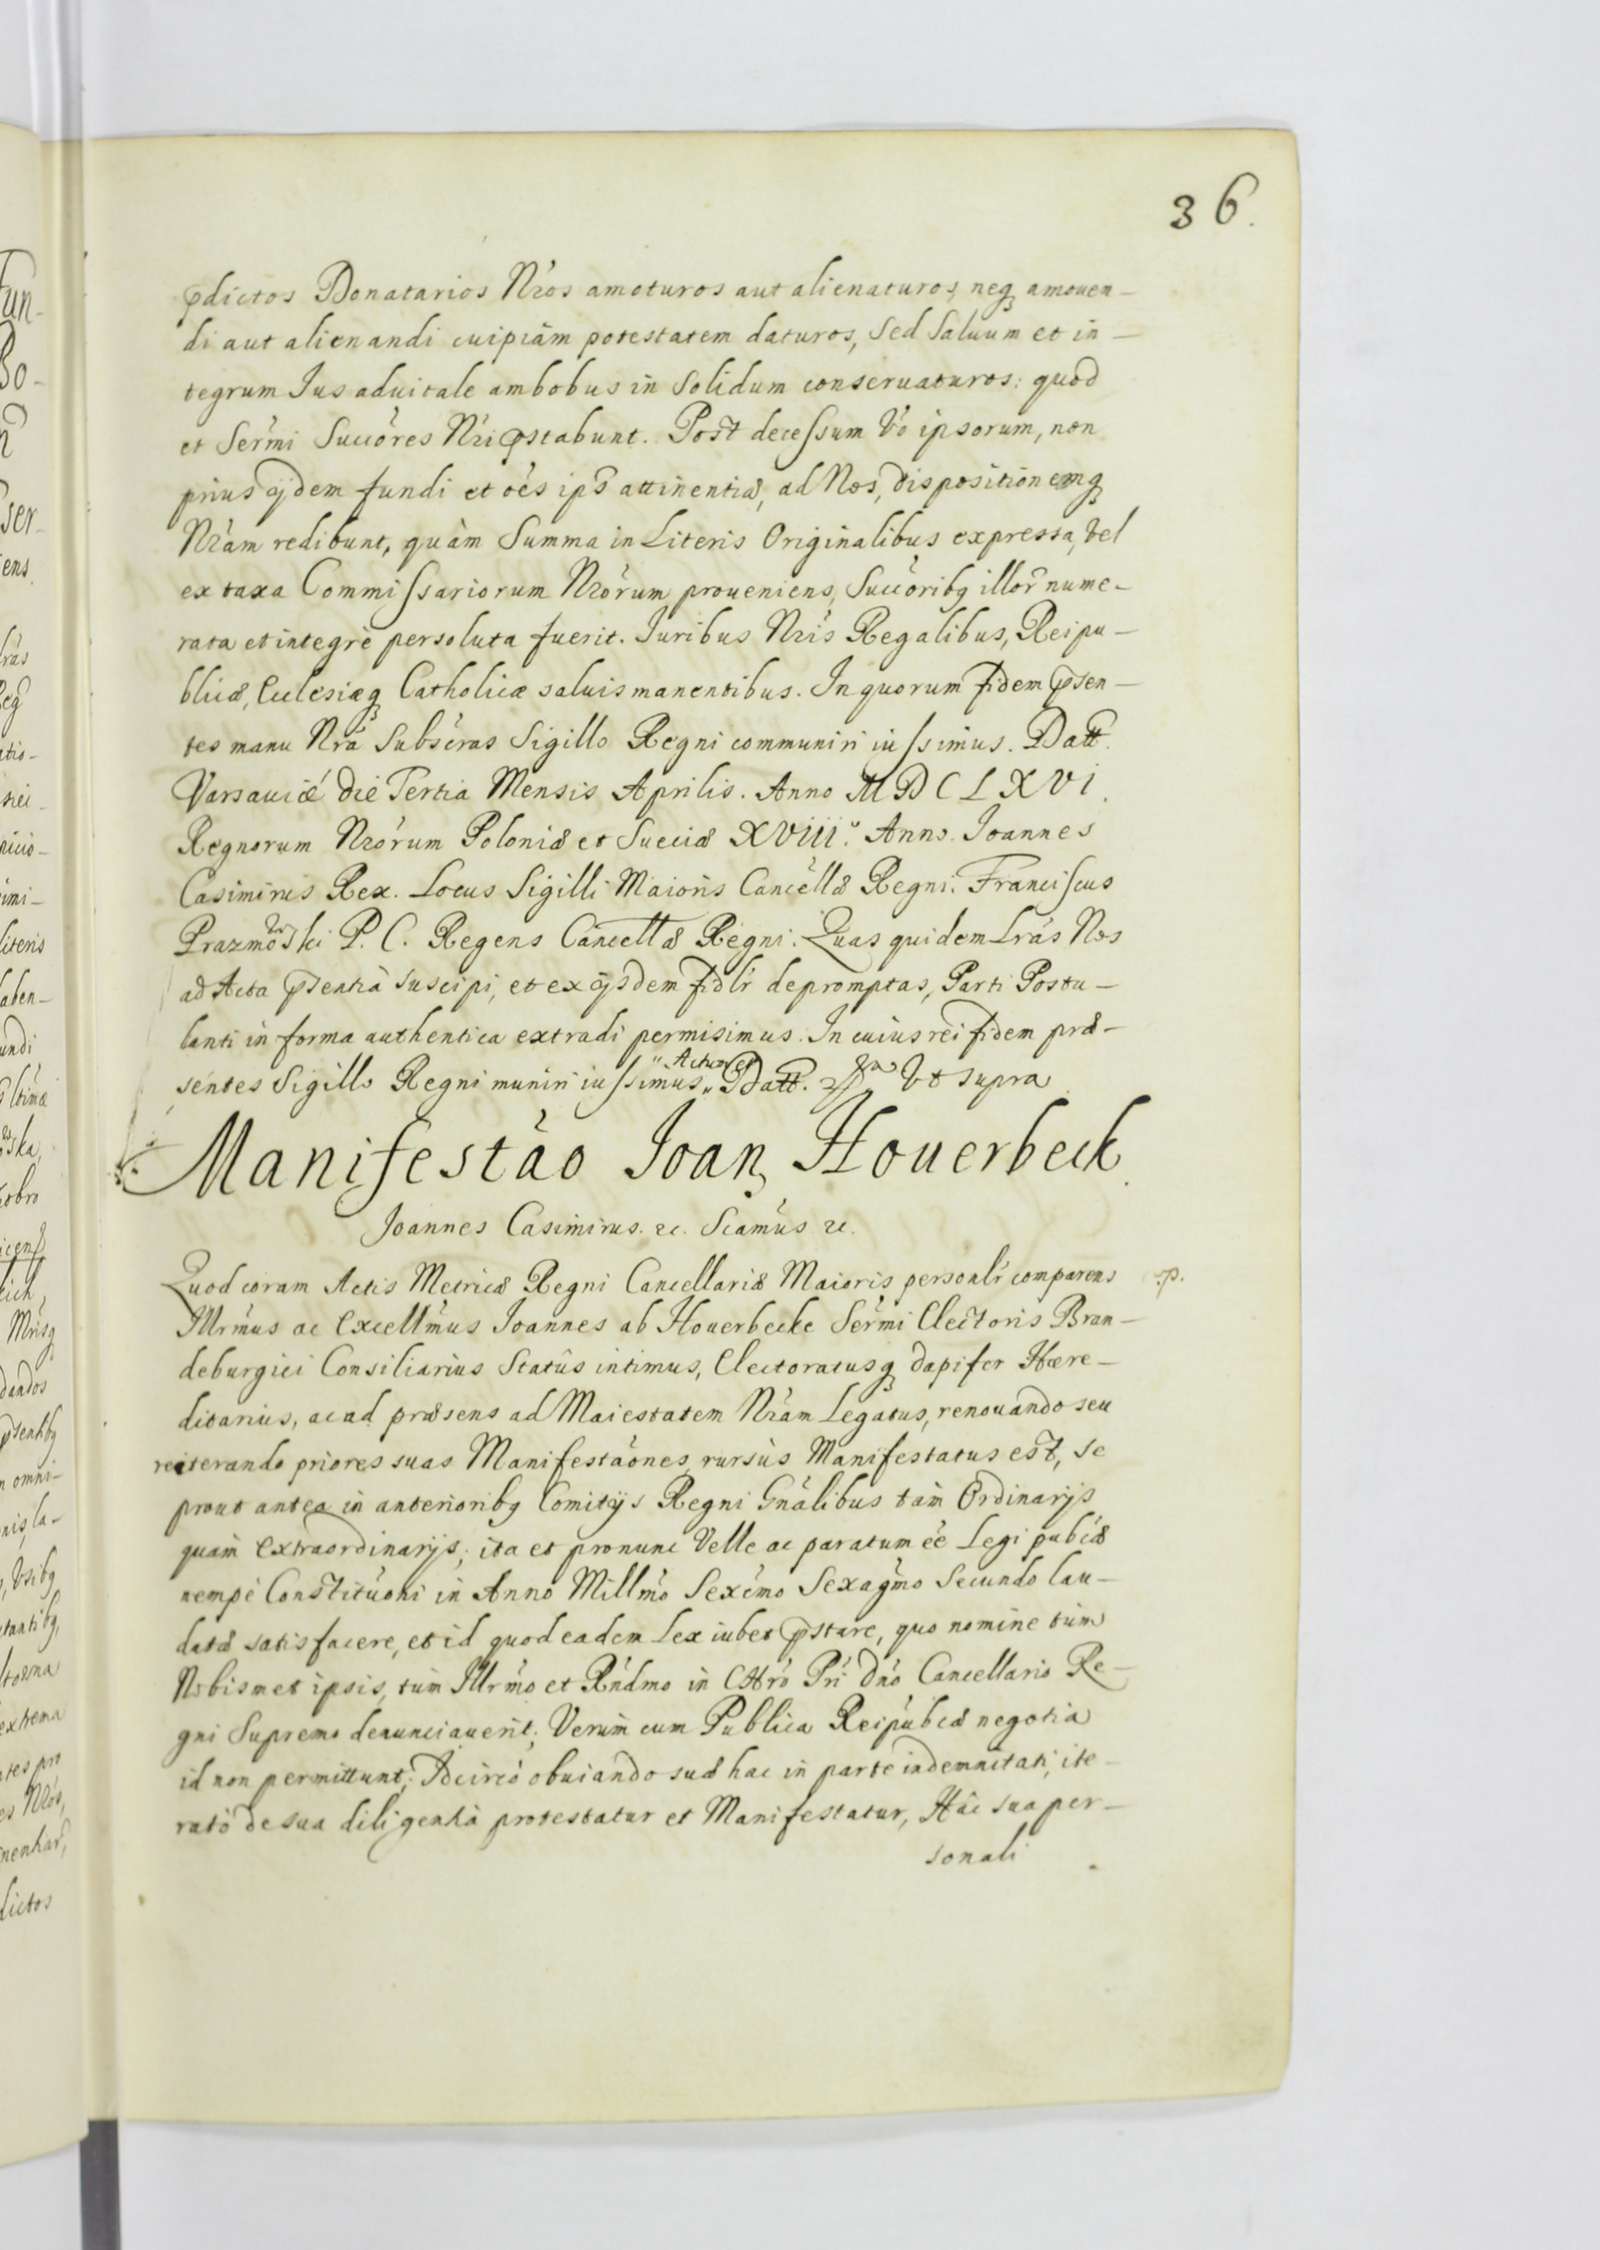 36.
pdictos Donatarios Nros amoturos aut alienaturos, neq amouen-
di aut alienandi cuipiam potestatem daturos, sed saluum et in-
tegrum Ius aduitale ambobus in solidum conseruaturos: quod
et Sermi Succores Nri pstabunt. Post decessum Vo ipsorum, non
prius ijdem fundi et oes ips attinentiæ, ad Nos, dispositionemq
Nram redibunt, quàm Summa in Literis Originalibus expressa, vel
ex taxa Commissariorum Nrorum proueniens, Succoribq illor nume-
rata et integrè persoluta fuerit. Iuribus Nris Regalibus, Reipu-
blicæ, Eclesiæq Catholicæ saluis manentibus. In quorum fidem psen-
tes manu Nra Subscras Sigillo Regni communiri iussimus. Datt.
Varsauiæ die Tertia Mensis Aprilis. Anno MDCLXVI.
Regnorum Nrorum Poloniæ et Sueciæ XVIII.° Anno. Ioannes
Casimirus Rex. Locus Sigilli Maioris Cancellæ Regni. Franciscus
Prazmowski P. C. Regens Cancellæ Regni. Quas quidem Lras Nos
ad Acta psentia suscipi, et ex ijsdem fidlr depromptas, Parti Postu-
lanti in forma authentica extradi permisimus. In cuius rei fidem præ-
sentes Sigillo Regni muniri iussimus. Datt. Vt supra
Manifestao Ioan, Houerbeck.
Joannes Casimirus. &c. Scamus &c.
Quod coram Actis Metricæ Regni Cancellariæ Maioris personlr comparens
.p.
Illrmus ac Excellmus Joannes ab Houerbecke Sermi Electoris Bran-
deburgici Consiliarius Statûs intimus, Electoratusq dapifer Hære-
ditarius, ac ad præsens ad Maiestatem Nram Legatus, renouando seu
reiterando priores suas Manifestaones, rursùs Manifestatus est, se
prout antea in anterioribq Comitijs Regni Gnalibus tam Ordinarijs
quam Extraordinarijs; ita et pronunc Velle ac paratum ee Legi pubcæ
nempè Constituoni in Anno Millmo Sexcmo Sexagmo Secundo lau-
datæ satisfacere, et id quod eadem Lex iubet pstare, quo nomine tum
Nobismet ipsis, tum Illrmo et Rndmo in CHro Pri Dno Cancellario Re-
gni Supremo denunciauerit; Verum cum Publica Reipubcæ negotia
id non permittunt; Idcirco obuiando suæ hac in parte indemnitati, ite-
rato de sua diligentia protestatur et Manifestatur, Hac sua per-
sonali